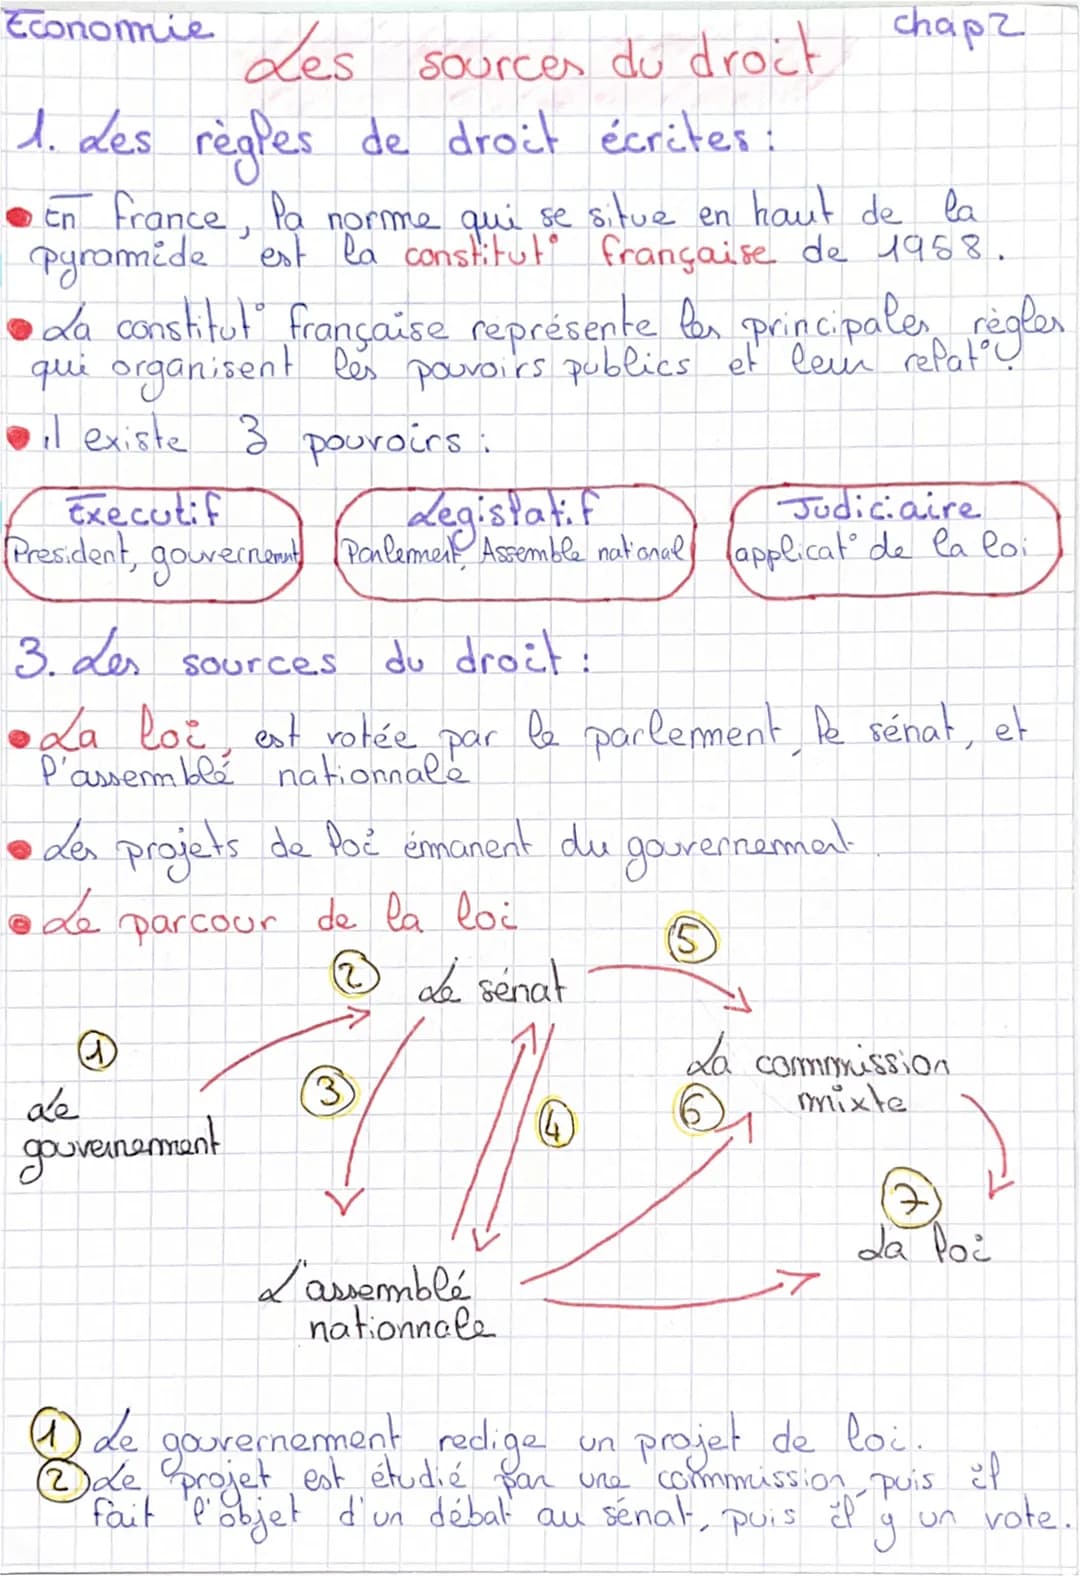 Economie
chap 2
Les sources du droit
1. Les règles de droit écrites :
En France, la norme qui se situe en haut de la
pyramide est la constitut° française de 1958.
La constitut° française représente les principales règles
qui organisent les pouvoirs publics et leur relat°.
il existe 3 pouvoirs :
Executif
President, gouvernemnt
Legislatif
Parlement, Assemble national
Judiciaire
applicat° de la loi
3. Les sources du droit :
La loi, est votée par le parlement, le sénat, et
l'assemblé nationnale
Les projets de loi émanent du gouvernement.
Le parcour de la loi
5
2
Le sénat
1
La commission
mixte
3
6
4
Le
gouvernement
7
La loi
L'assemblé
nationnale
1 Le gouvernement redige un projet de loi.
2 Le projet est étudié par une commmission, puis il
fait l'objet d'un débat au sénat, puis il y un vote.